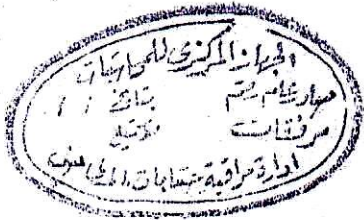 الجهاز المركزى للمحاسبات
صادر عام رقم بتاريخ / /
مرفقات
ادارة مراقبة حسابات